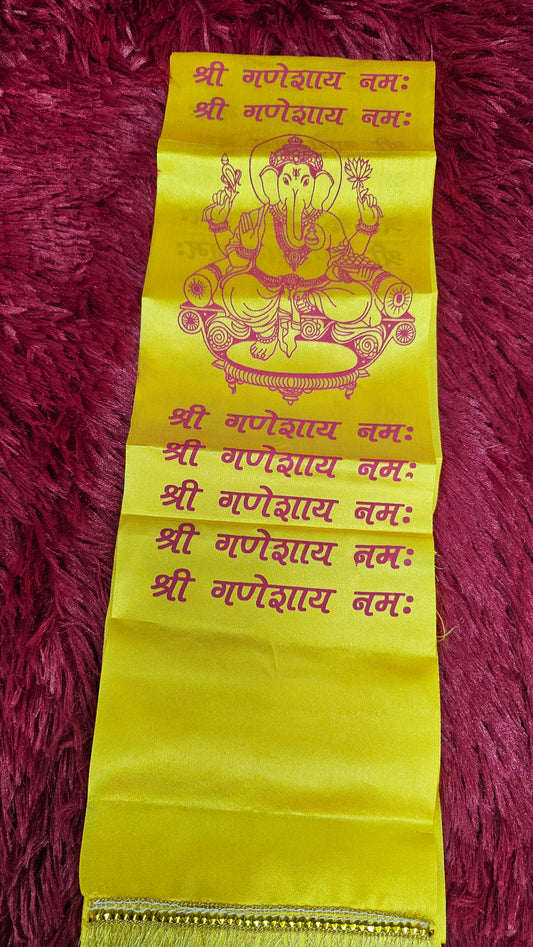 श्री गणेशाय नमः
श्री गणेशाय नमः
श्री गणेशाय नमः
श्री गणेशाय नमः
श्री गणेशाय नमः
श्री गणेशाय नमः
श्री गणेशाय नमः